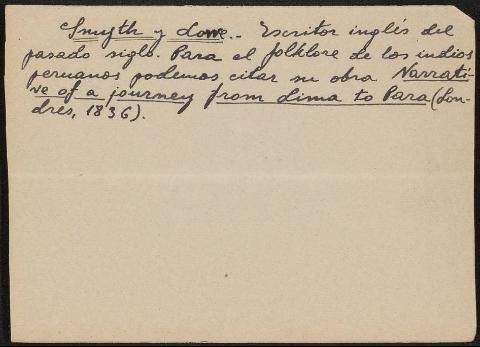 Smyth y Lowe.- Escritor inglés del
pasado siglo. Para el folklore de los indios
peruanos podemos citar su obra Narrati-
ve of a journey from Lima to Para (Lon-
dres, 1836).